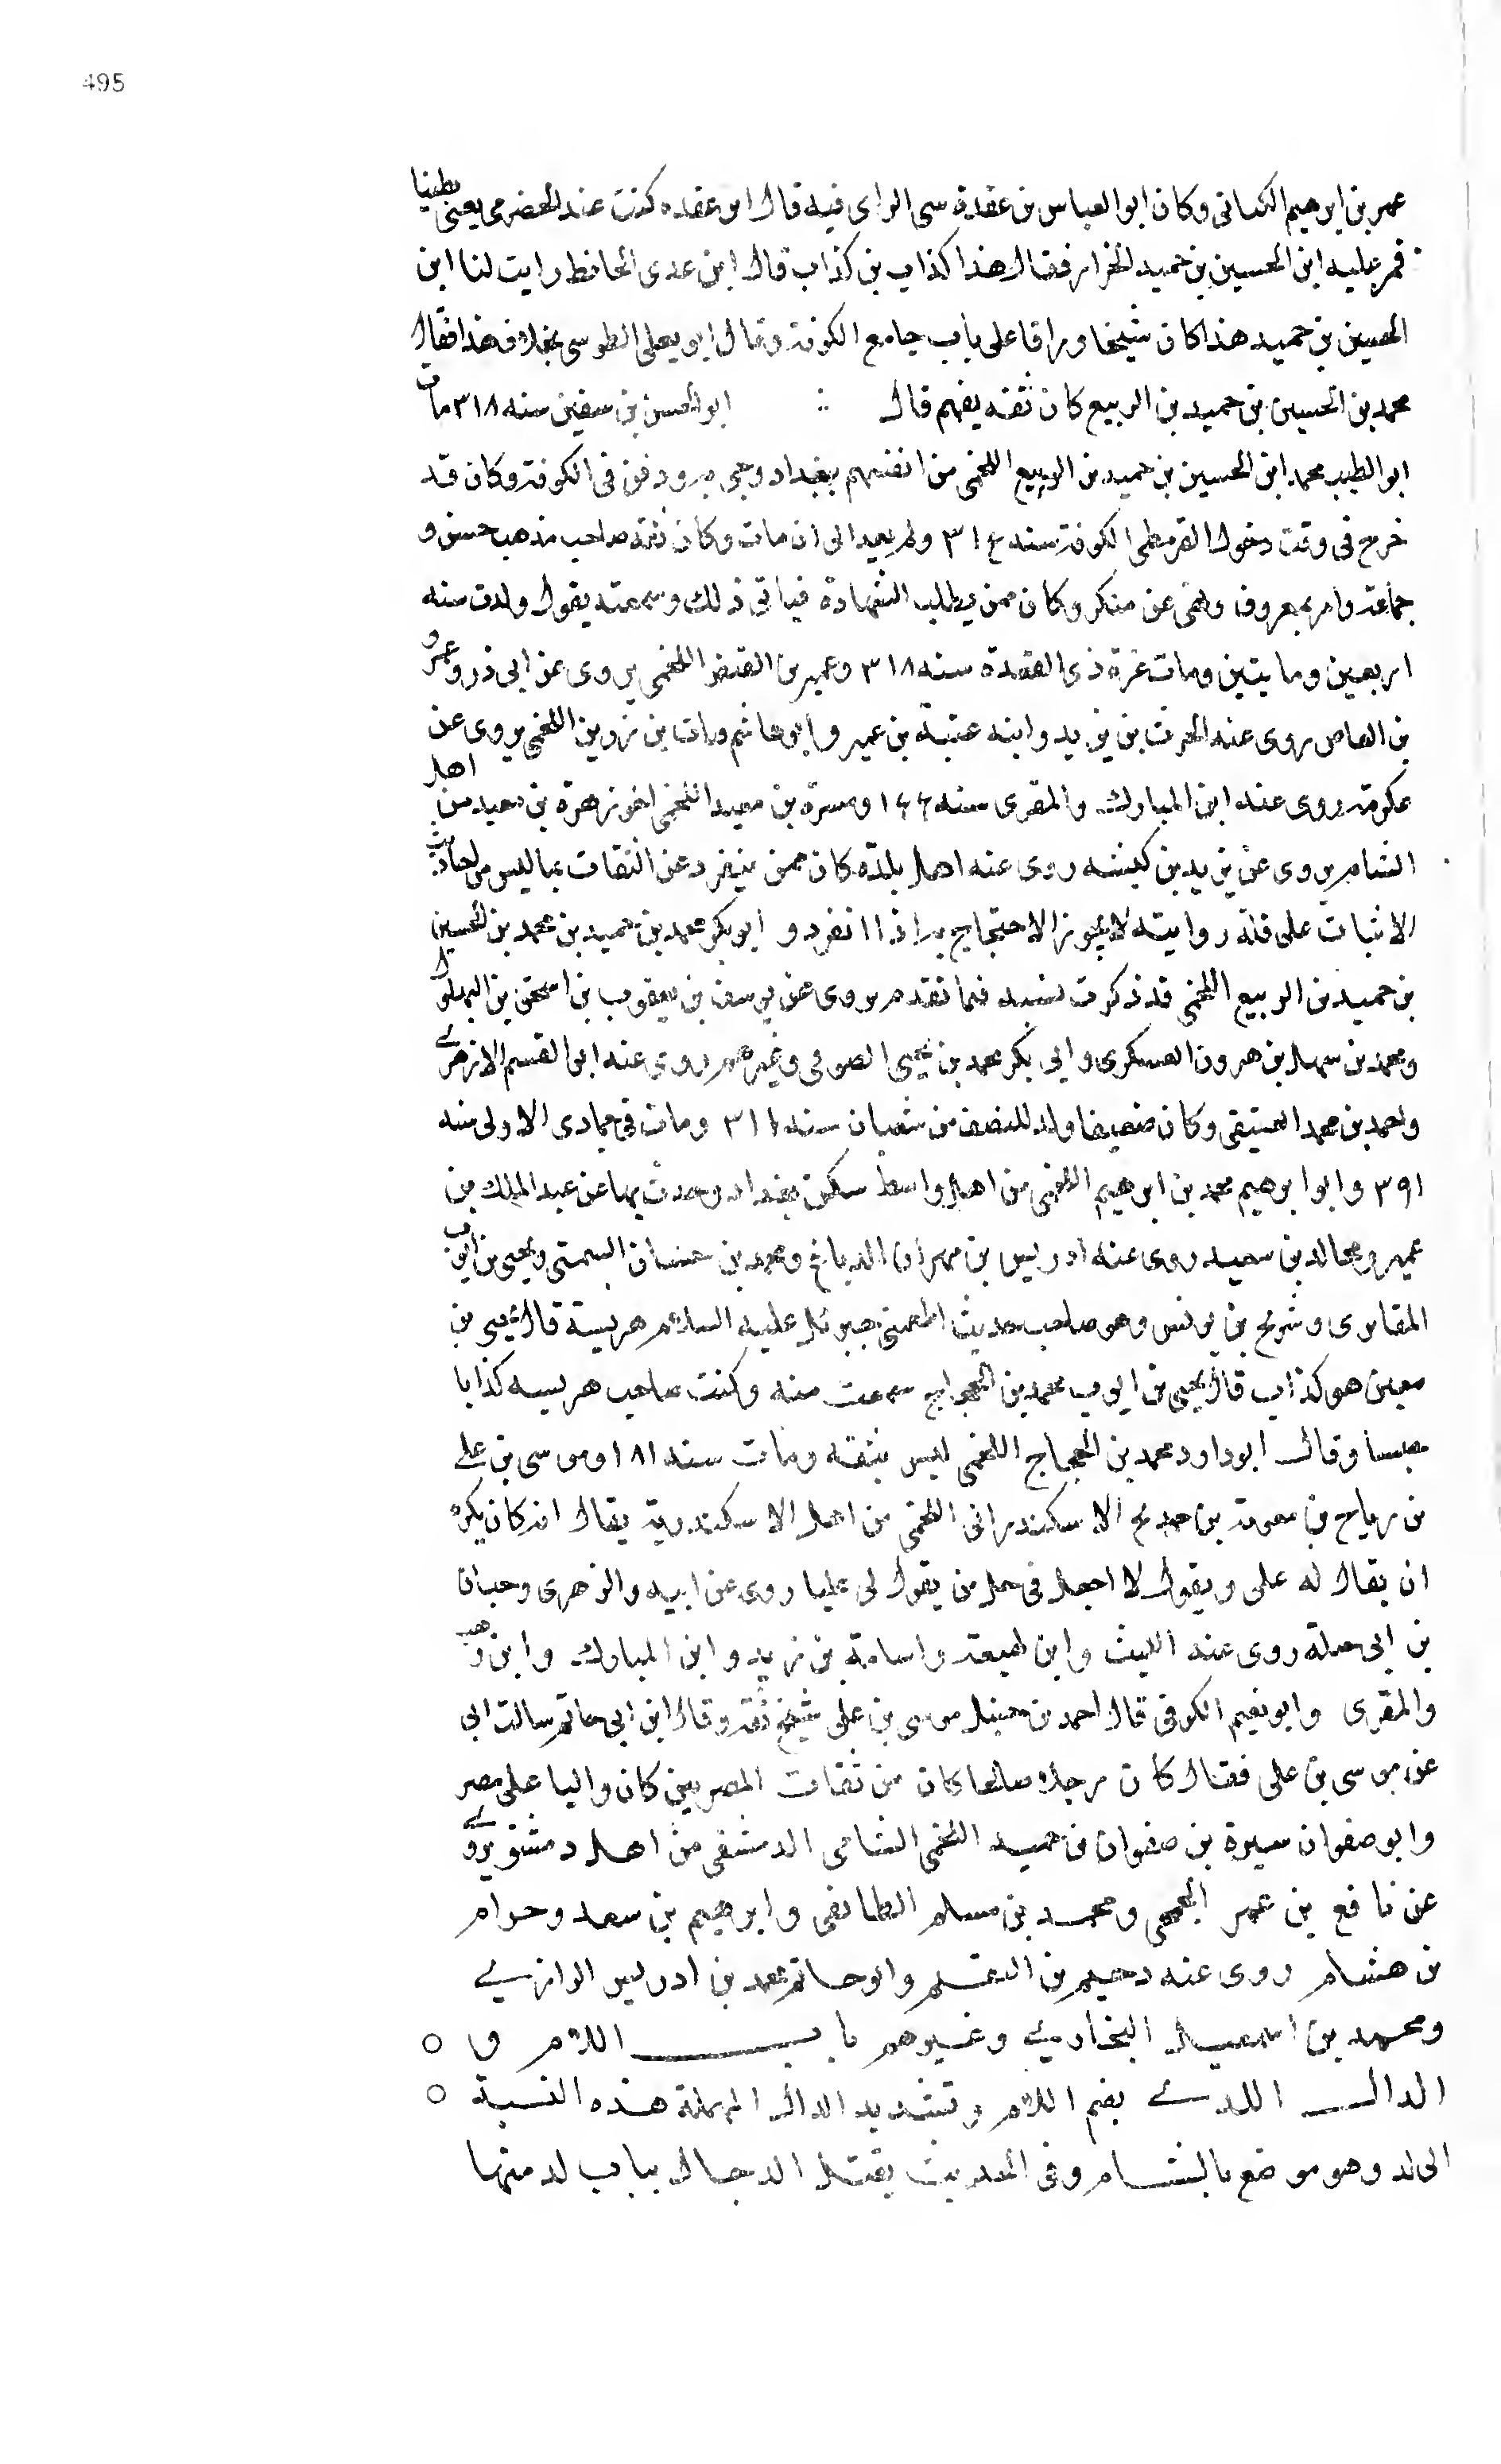 495
عمر بن ابرهيم الكتانى وكان ابو العباس بن عقدة سى الراى فيه قال ابن عقده كنت عند الحضرمى يعنى
فمر عليه ابن الحسين بن حميد الخزاز فقال هذا كذاب بن كذاب قال ابن عدى الحافظ رايت لنا ابن
الحسين بن حميد هذا كان شيخا وراقا على باب جامع الكوفة وقال ابو يعلى الطوسى بخلاف هذا فقال
محمد بن الحسين بن حميد بن الربيع كان ثقه يفهم قال ابو الحسن بن سفين سنه ٣١٨ مات
ابو الطيب محمد ابن الحسين بن حميد بن الربيع اللخمى من انفسهم ببغداد وجى به ودفن فى الكوفة وكان قد
خرج فى وقت دخول القرمطى الكوفة سنه ٣١٤ ولم يعد الى ان مات وكان ثقة صاحب مذهب حسن و
جماعة وامر بمعروف ونهى عن منكر وكان ممن يطلب الشهادة فياتى ذلك وسمعته يقول ولدت سنه
اربعين ومايتين ومات غرة ذى القعدة سنه ٣١٨ وعمير بن اللخمى يروى عن ابى ذر وعمرو
بن العاص روى عنه الحرث بن يزيد وابنه عتبة بن عمير وابو هاشم بن رزين اللخمى يروى عن
عكرمة روى عنه ابن المبارك والمقرى سنه ومسرة بن معبد اللخمى اخو زهرة بن معبد من اهل
الشام يروى عن يزيد بن كبشه روى عنه اهل بلده كان ممن ينفرد عن الثقات بما ليس من احاديث
الاثبات على قلة روايته لا يجوز الاحتجاج به اذا انفرد و ابو بكر محمد بن حميد بن محمد بن الحسين
بن حميد بن الربيع اللخمى قد ذكرت نسبه فيما تقدم يروى عن يوسف بن يعقوب بن اسحق بن البهلول
ومحمد بن سهل بن هرون العسكرى وابى بكر محمد بن يحيى الصولى وغيرهم روى عنه ابو القسم الازهرى
واحمد بن محمد العتيقى وكان ضعيفا ولد للنصف من شعبان سنه ٣١١ ومات فى جمادى الاولى سنه
٣٩١ وابو ابرهيم محمد بن ابرهيم اللخمى من اهل واسط سكن بغداد وحدث بها عن عبد الملك بن
عمير ومجالد بن سعيد روى عنه ادريس بن مهران الدباغ ومحمد بن حسان السمتى ويحيى بن ايوب
المقابرى وشريح بن يونس وهو صاحب حديث اطعمنى جبرئل عليه السلام هريسة قال يحيى بن
معين هو كذاب قال يحيى بن ايوب محمد بن الحجاج سمعت منه وكنت صاحب هريسه كذابا
خبيثا وقال ابو داود محمد بن الحجاج اللخمى ليس بثقه ومات سنه ١٨١ وموسى بن على
بن رباح بن معوية بن حديج الاسكندرانى اللخمى من اهل الاسكندرية يقال انه كان يكره
ان يقال له على ويقول لا اجعل فى حل من يقول لى عليا روى عن ابيه والزهرى وحبان
بن ابى جبلة روى عنه الليث وابن لهيعة واسامة بن زيد وابن المبارك وابن وهب
والمقرى وابو نعيم الكوفى قال احمد بن حنبل موسى بن على شيخ ثقة وقال ابن ابى حاتم سالت ابى
عن موسى بن على فقال كان رجلا صالحا كان من ثقات المصريين كان واليا على مصر
وابو صفوان يسرة بن صفوان بن حميد اللخمى الشامى الدمشقى من اهل دمشق يروى
عن نافع بن عمر الجمحى ومحمد بن مسلم الطائفى وابرهيم بن سعد وحزام
بن هشام روى عنه دحيم بن اليتيم وابو حاتم محمد بن ادريس الرازى
ومحمد بن اسمعيل البخارى وغيرهم باب اللام و
الدال اللدى بضم اللام وتشديد الدال المهملة هذه النسبة
الى لد وهو موضع بالشام وفى الحديث يقتل الدجال بباب لد منها